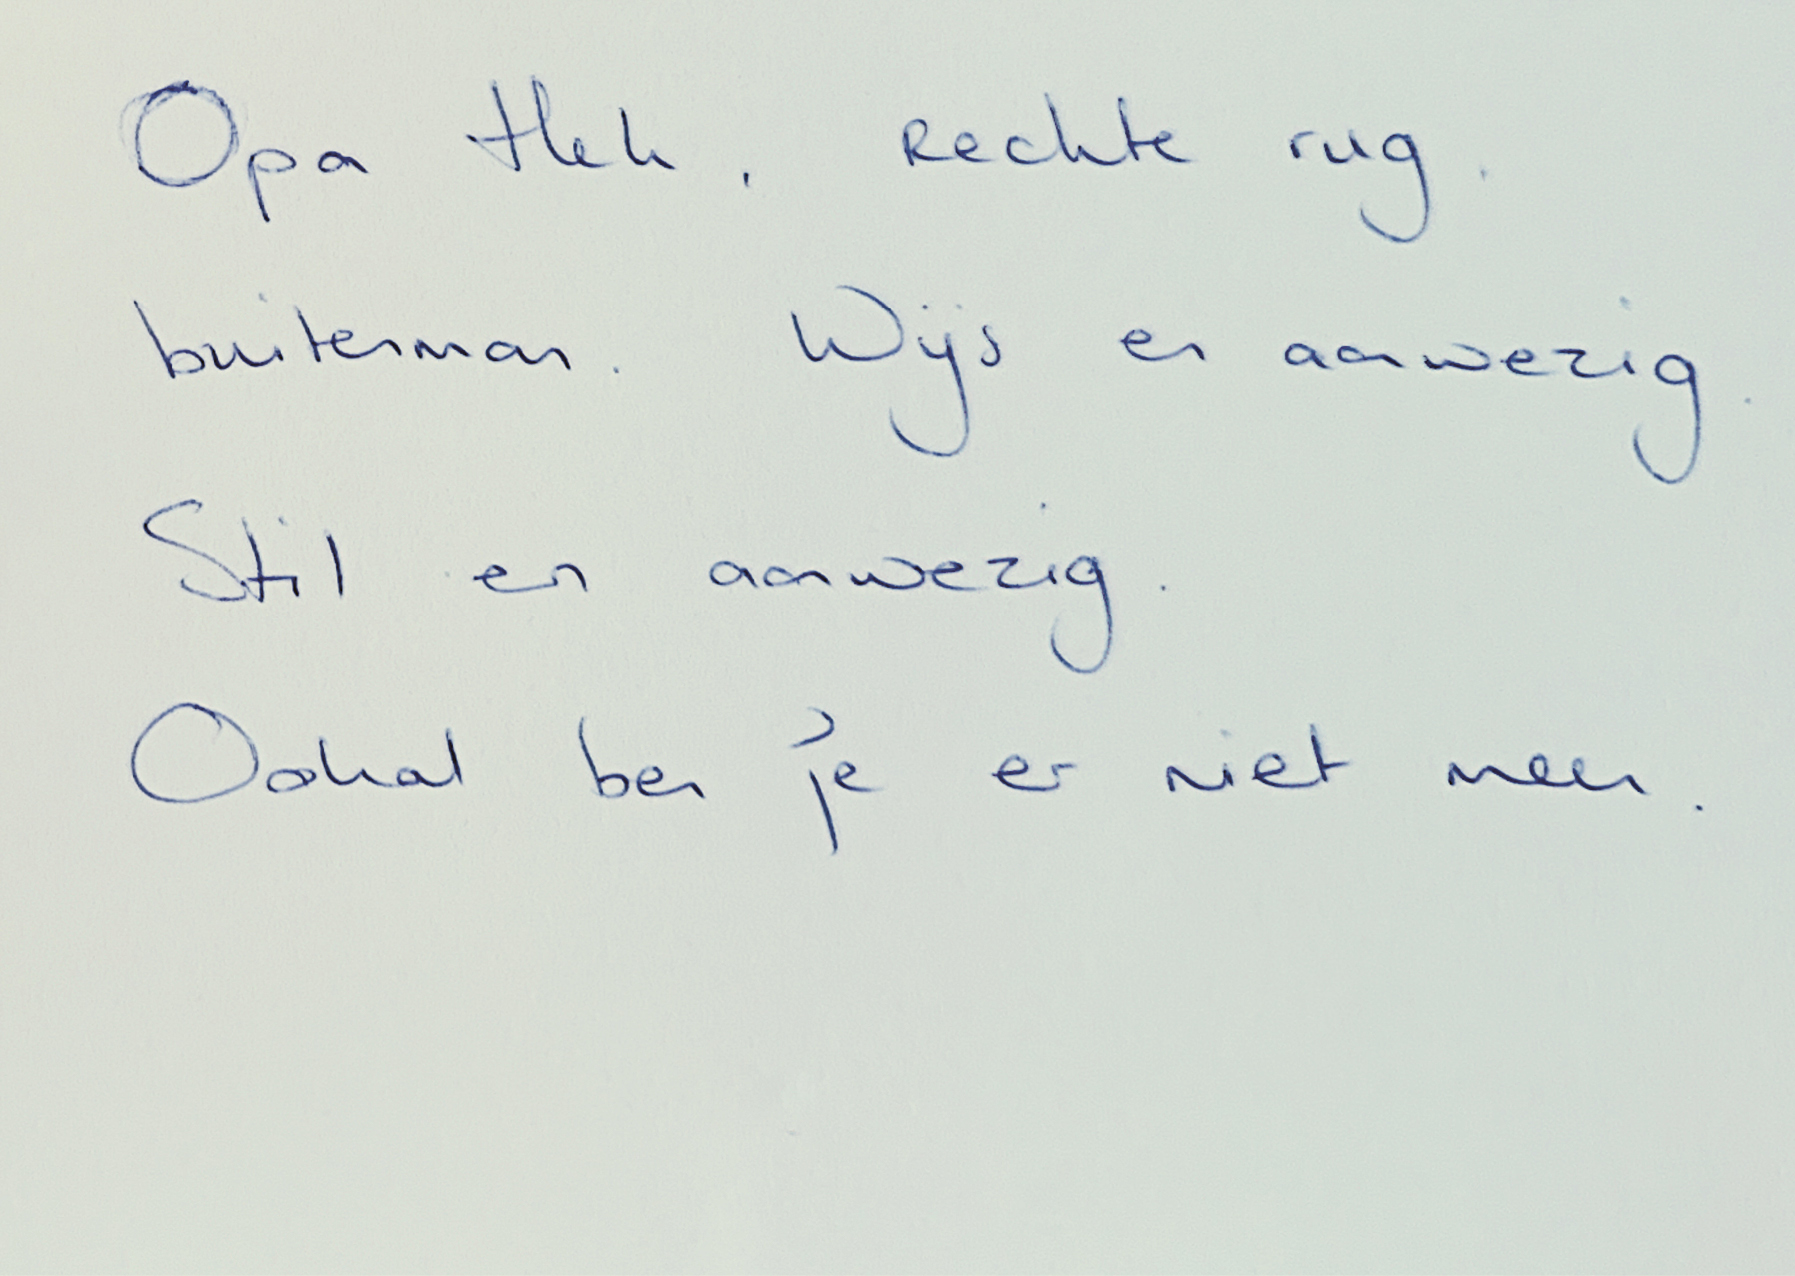 Opa Hek. Rechte rug.
buitenman. Wijs en aanwezig.
Stil en aanwezig.
Ookal ben je er niet meer.